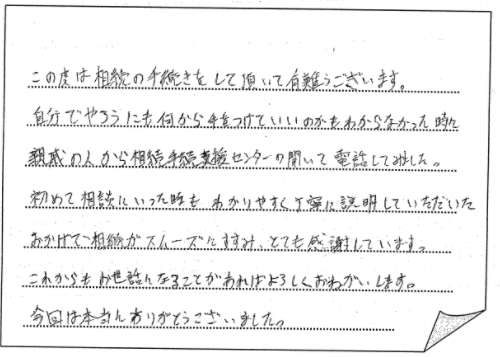 この度は相続の手続きをして頂いて有難うございます。
自分でやろうにも何から手をつけていいのかもわからなかった時に
親戚の人から相続手続支援センターの聞いて電話してみました。
初めて相談にいった時も、わかりやすく丁寧に説明していただいた
おかげで相続がスムーズにすすみ、とても感謝しています。
これからもお世話になることがあればよろしくおねがいします。
今回は本当にありがとうございました。